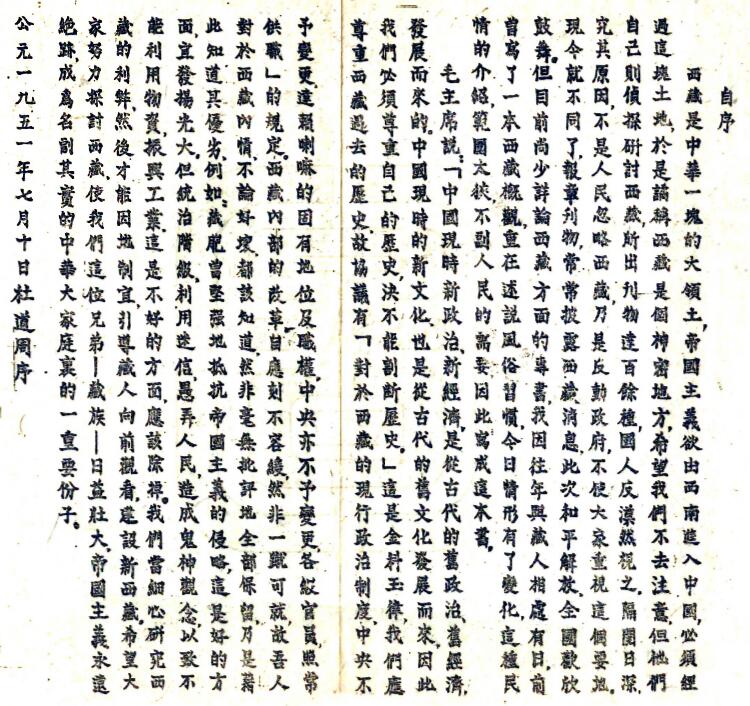 自序
西藏是中華一塊的大領土，帝國主義欲由西南進入中國，必須經
過這塊土地，於是謠稱西藏是個神密地方，希望我們不去注意但他們
自己則偵探研討西藏，所出刊物達百餘種，國人反漠然視之，隔閡日深，
究其原因，不是人民忽略西藏，乃是反動政府，不使大衆重視這個要地，
現今就不同了，報章刊物，常常披露西藏消息，此次和平解放，全國歡欣
鼓舞。但目前尚少詳論西藏方面的專書，我因往年與藏人相處有日，前
曾寫了一本西藏概觀，重在述説風俗習慣，今日情形有了變化，這種民
情的介紹，範圍太狹，不副人民的需要，因此寫成這本書。
毛主席說：「中國現時新政治、新經濟，是從古代的舊政治、舊經濟，
發展而來的。中國現時的新文化，也是從古代的舊文化發展而來，因此
我們必須尊重自己的歷史，決不能割斷歷史。」這是金科玉律，我們應
尊重西藏過去的歷史，故協議有「對於西藏的現行政治制度，中央不
予變更，達賴喇嘛的固有地位及職權，中央亦不予變更，各級官員照常
供職」的規定。西藏內部的改革，自應刻不容緩，然非一蹴可就，故吾人
對於西藏內情，不論好壞，都該知道，然非毫無批評地全部保留，乃是藉
此知道其優劣，例如：藏胞曾堅强地抵抗帝國主義的侵略，這是好的方
面，宜發揚光大。但統治階級，利用迷信，愚弄人民，造成鬼神觀念，以致不
能利用物資，振興工業，這是不好的方面，應該除掉。我們當細心研究西
藏的利弊，然後才能因地制宜，引導藏人向前觀看，建設新西藏。希望大
家努力探討西藏，使我們這位兄弟——藏族——日益壯大，帝國主義永遠
絶跡，成爲名副其實的中華大家庭裏的一重要份子。
公元一九五一年七月十日杜道周序